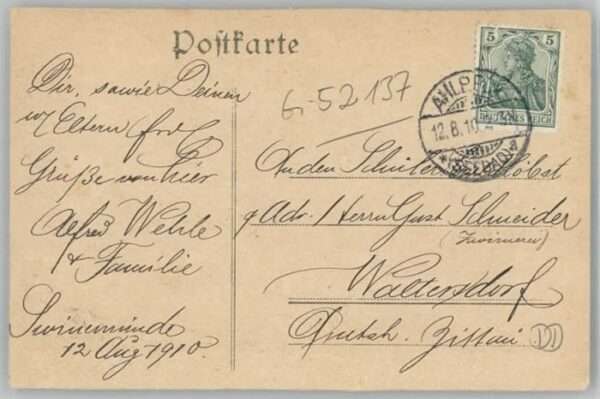 Postkarte
Dir, sowie Deinen
w/ Eltern frdl
Grüße von hier
Alfred Wehle
& Familie
Swinemünde
12 Aug 1910.
6-52137
5 5
DEUTSCHES REICH
AHLBECK
12.8.10.
*(SEEBAD)*a
An den Schüler
p Adr. / Herrn Gust Schneider
(Zwirnerei)
Waltersdorf
Deutsch. Zittau